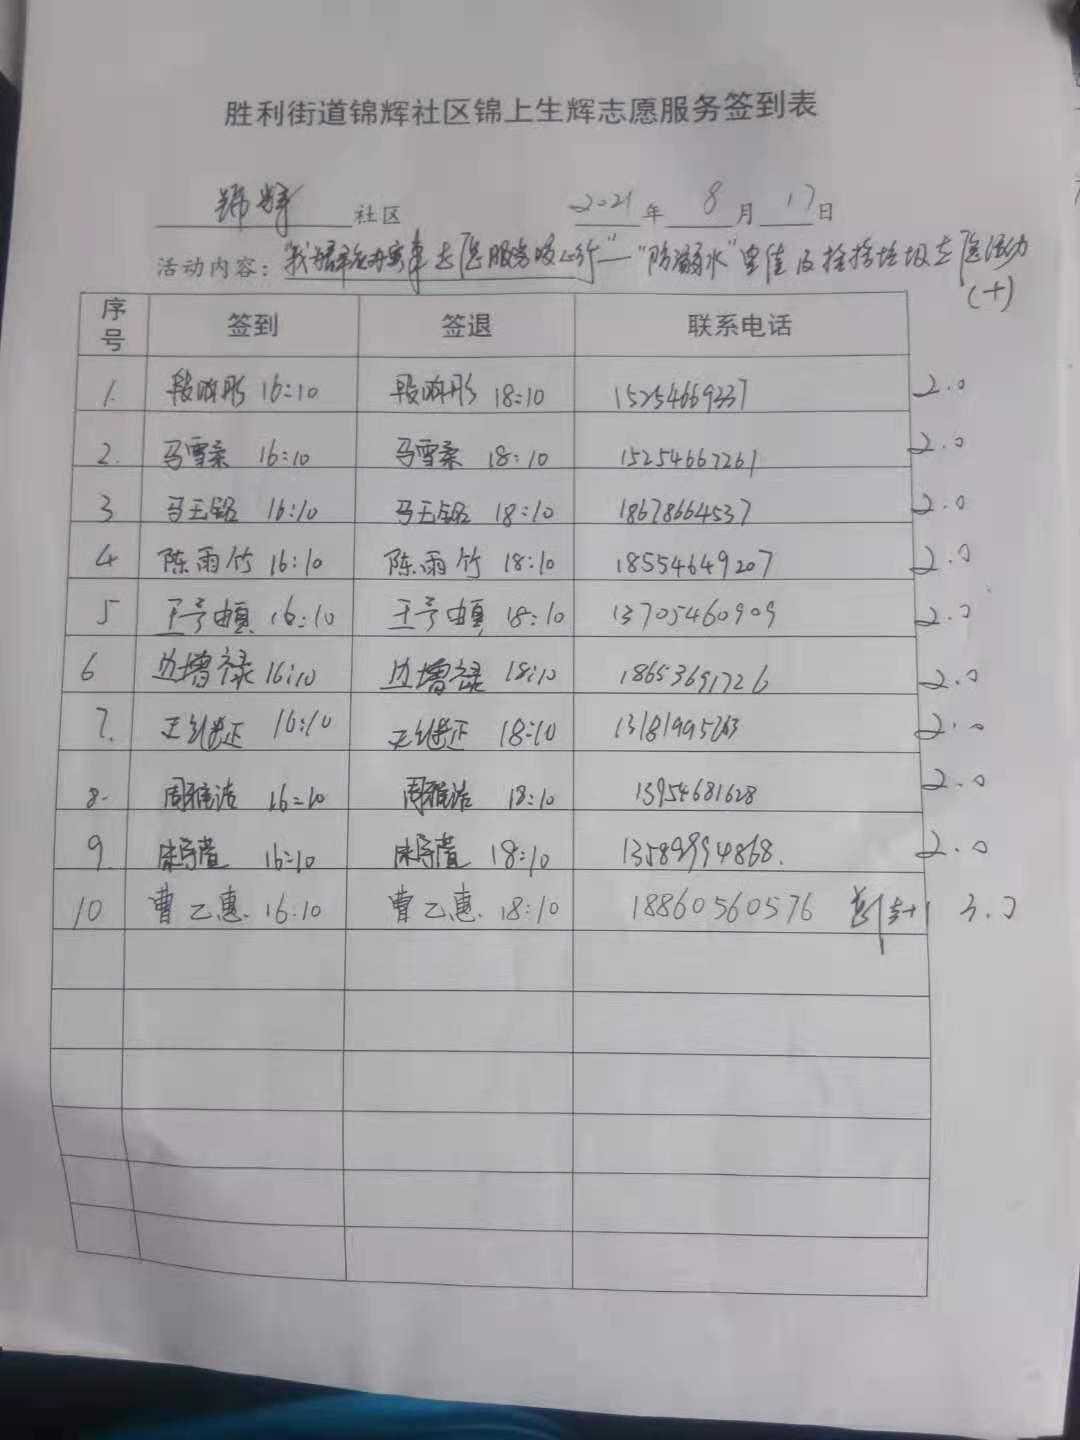 胜利街道锦辉社区锦上生辉志愿服务签到表
锦辉 社区 2021 年 8 月 17 日
活动内容："我为群众办实事志愿服务暖心行"—"防溺水"宣传及捡拾垃圾志愿活动
(十)
序号 签到 签退 联系电话
1. 段 彤 16:10 段 彤 18:10 15254669337 2.0
2. 马雪柔 16:10 马雪柔 18:10 15254667261 2.0
3 马玉铭 16:10 马玉铭 18:10 18678664537 2.0
4 陈雨竹 16:10 陈雨竹 18:10 18554649207 2.0
5 王 16:10 王 18:10 13705460909 2.0
6 边增禄 16:10 边增禄 18:10 18653691726 2.0
7. 王继正 16:10 王继正 18:10 2.0
8. 周雅洁 16:10 周雅洁 18:10 13954681628 2.0
9. 16:10 18:10 13589994868. 2.0
10 曹乙惠. 16:10 曹乙惠. 18:10 18860560576 +1 3.0